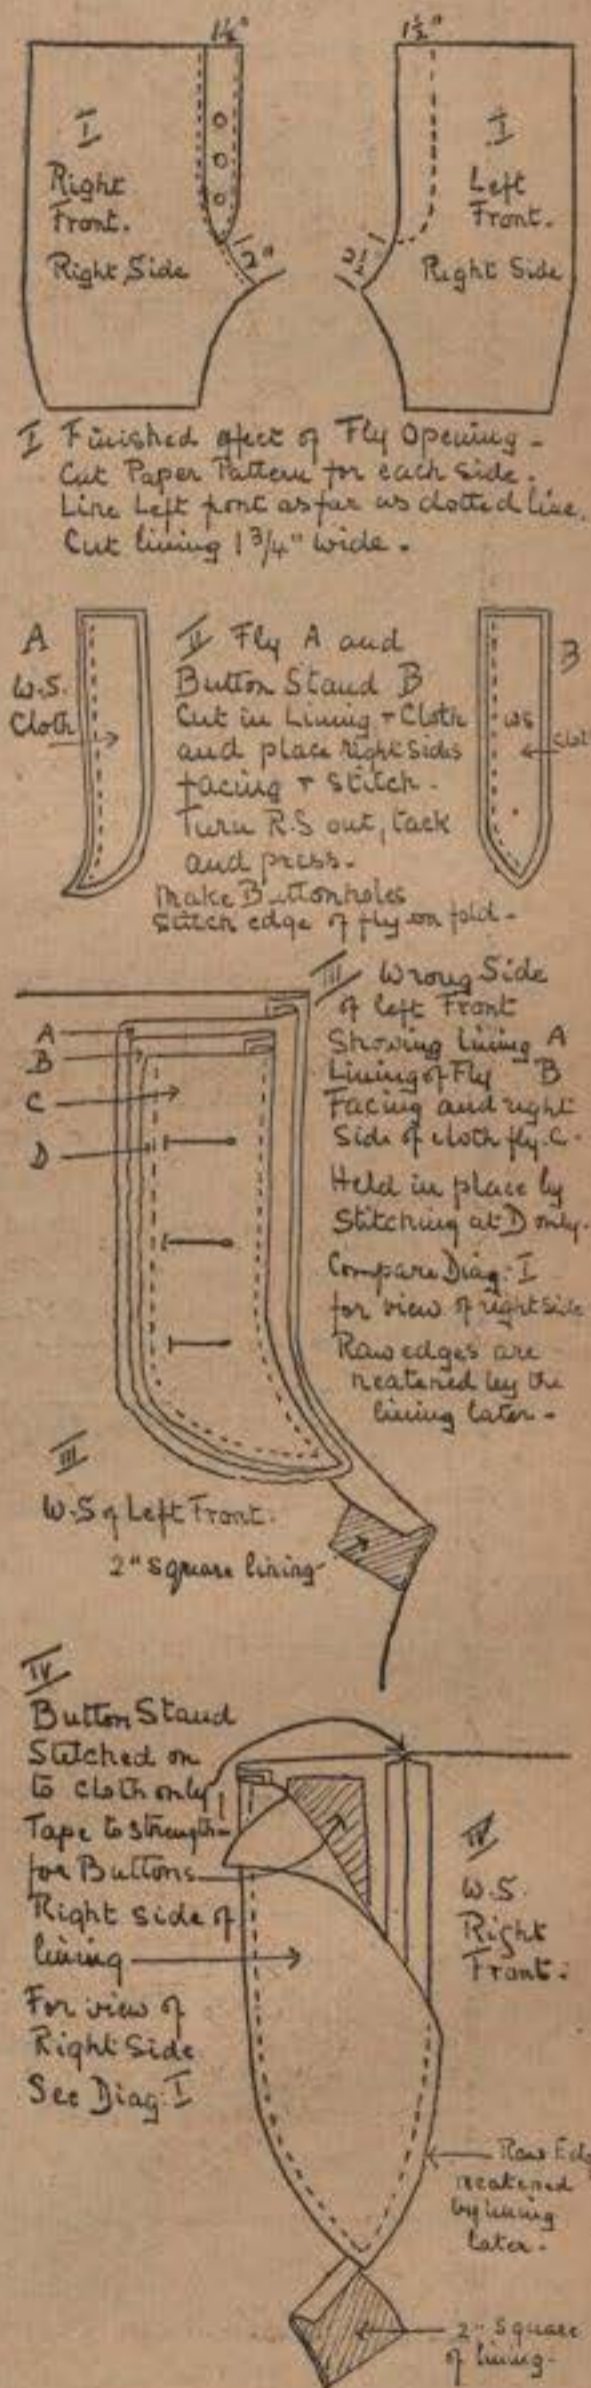 1½"
1½"
I
Right
Front.
Right Side
2"
I
Left
Front.
Right Side
2½"
I Finished effect of Fly Opening -
Cut Paper Pattern for each side.
Line Left front as far as dotted line.
Cut lining 1 3/4" wide.
A
W.S.
Cloth
II Fly A and
Button Stand B
Cut in Lining + Cloth
and place right sides
facing + Stitch.
Turn R.S out, tack
and press.
Make Buttonholes
Stitch edge of fly on fold.
B
WS
Clot
III Wrong Side
of left Front
Showing Lining A
Lining of Fly B
Facing and right
Side of cloth fly C.
Held in place by
Stitching at D only.
Compare Diag: I
for view of right side
Raw edges are
neatened by the
lining later -
A
B
C
D
III
W.S of Left Front.
2" square lining
IV
Button Stand
Stitched on
to cloth only
Tape to strength-
for Buttons
Right side of
lining
For view of
Right Side
See Diag: I
IV
W.S.
Right
Front.
Raw Edg
neatened
by lining
later.
2" Square
of lining